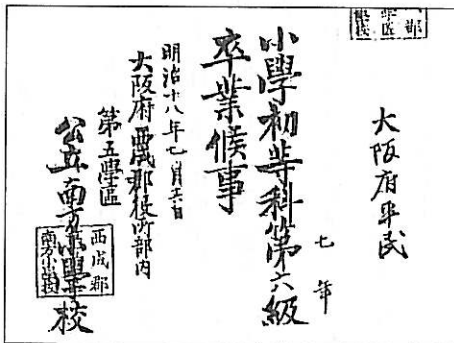 大阪府平民
七年
小學初等科第六級
卒業候事
明治十八年七月六日
大阪府西成郡役所部内
第五學區
公立南方小學校
西成郡
南方小學校